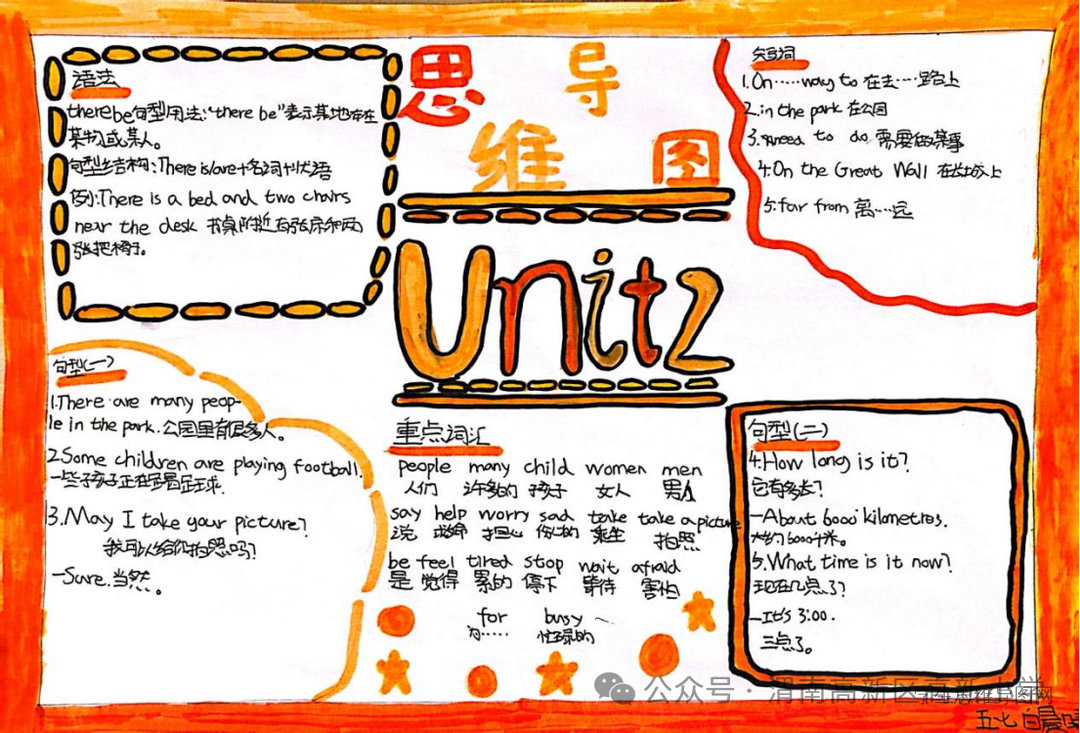 语法
there be句型用法:"there be"表示某地存在
某物或某人。
句型结构:There is/are+名词+状语
例:There is a bed and two chairs
near the desk 书桌附近有张床和两
张把椅子。
思
导
维
图
Unit2
关键词
1.On……way to 在去……路上
2.in the park 在公园
3.need to do 需要做某事
4.On the Great Wall 在长城上
5.far from 离……远
句型(一)
1.There are many peop-
le in the park.公园里有很多人。
2.Some children are playing football.
一些孩子正在踢足球.
3.May I take your picture?
我可以给你拍照吗?
—Sure.当然。
重点词汇
people many child women men
人们 许多的 孩子 女人 男人
say help worry sad take take a picture
说 担心 乘坐 拍照
be feel tired stop wait afraid
是 觉得 累的 停下 等待 害怕
for busy
为…… 忙碌的
句型(二)
4.How long is it?
它有多长?
—About 6000 kilometres.
大约6000千米。
5.What time is it now?
现在几点了?
—It's 3:00.
三点了。
公众号·渭南高新区高新小学
五七 白晨